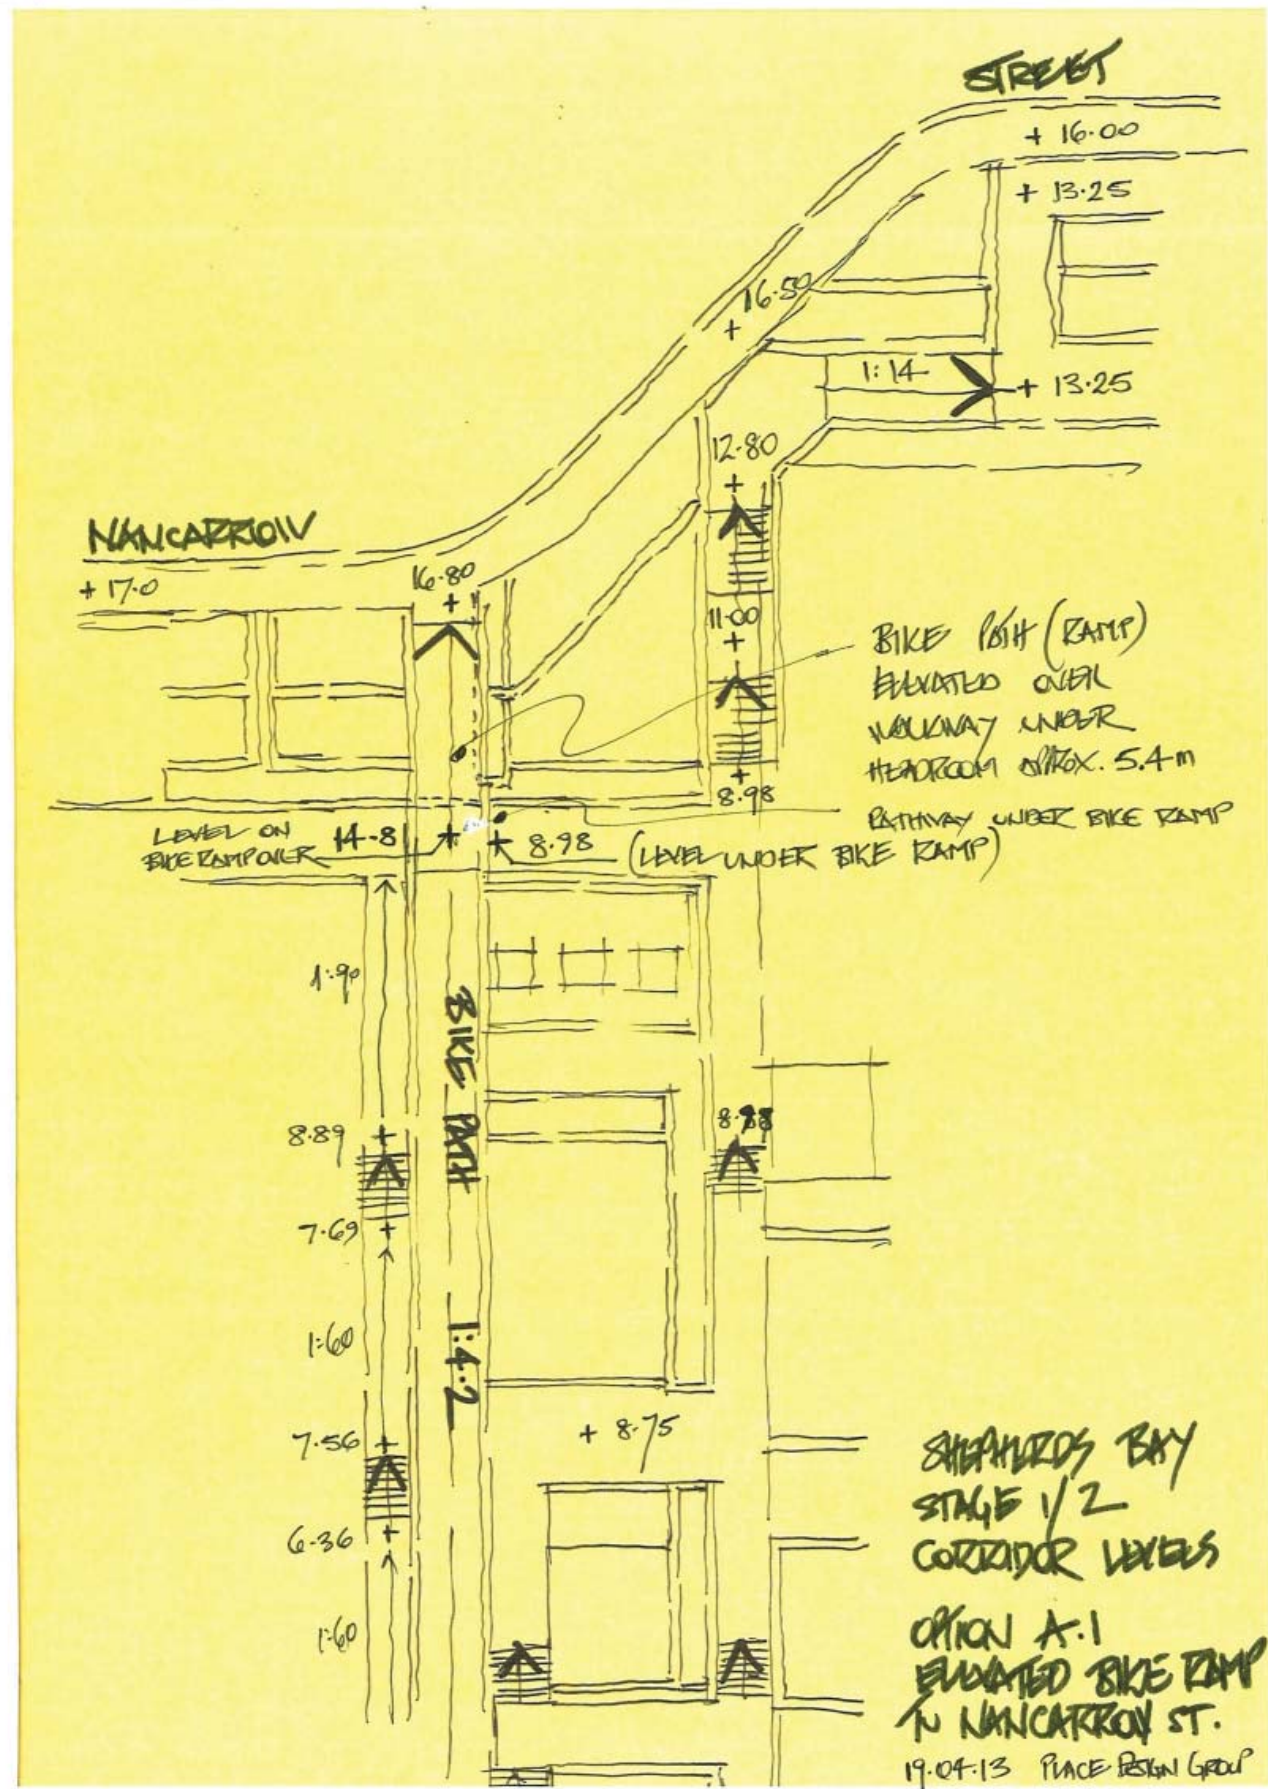 STREET
+ 16.00
+ 13.25
16.50
+
1:14
+ 13.25
12.80
+
NANCARROW
+ 17.0
16.80
+
11.00
+
BIKE PATH (RAMP)
ELEVATED OVER
WALKWAY UNDER
HEADROOM APPROX. 5.4m
+
8.98
PATHWAY UNDER BIKE RAMP
LEVEL ON
BIKE RAMP OVER
14.8 +
+ 8.98
(LEVEL UNDER BIKE RAMP)
1:90
BIKE PATH 1:4.2
8.89 +
7.69 +
1:60
7.56 +
+ 8.75
6.36 +
1:60
SHEPHERDS BAY
STAGE 1/2
CORRIDOR LEVELS
OPTION A.1
ELEVATED BIKE RAMP
IN NANCARROW ST.
19.04.13 PLACE DESIGN GROUP